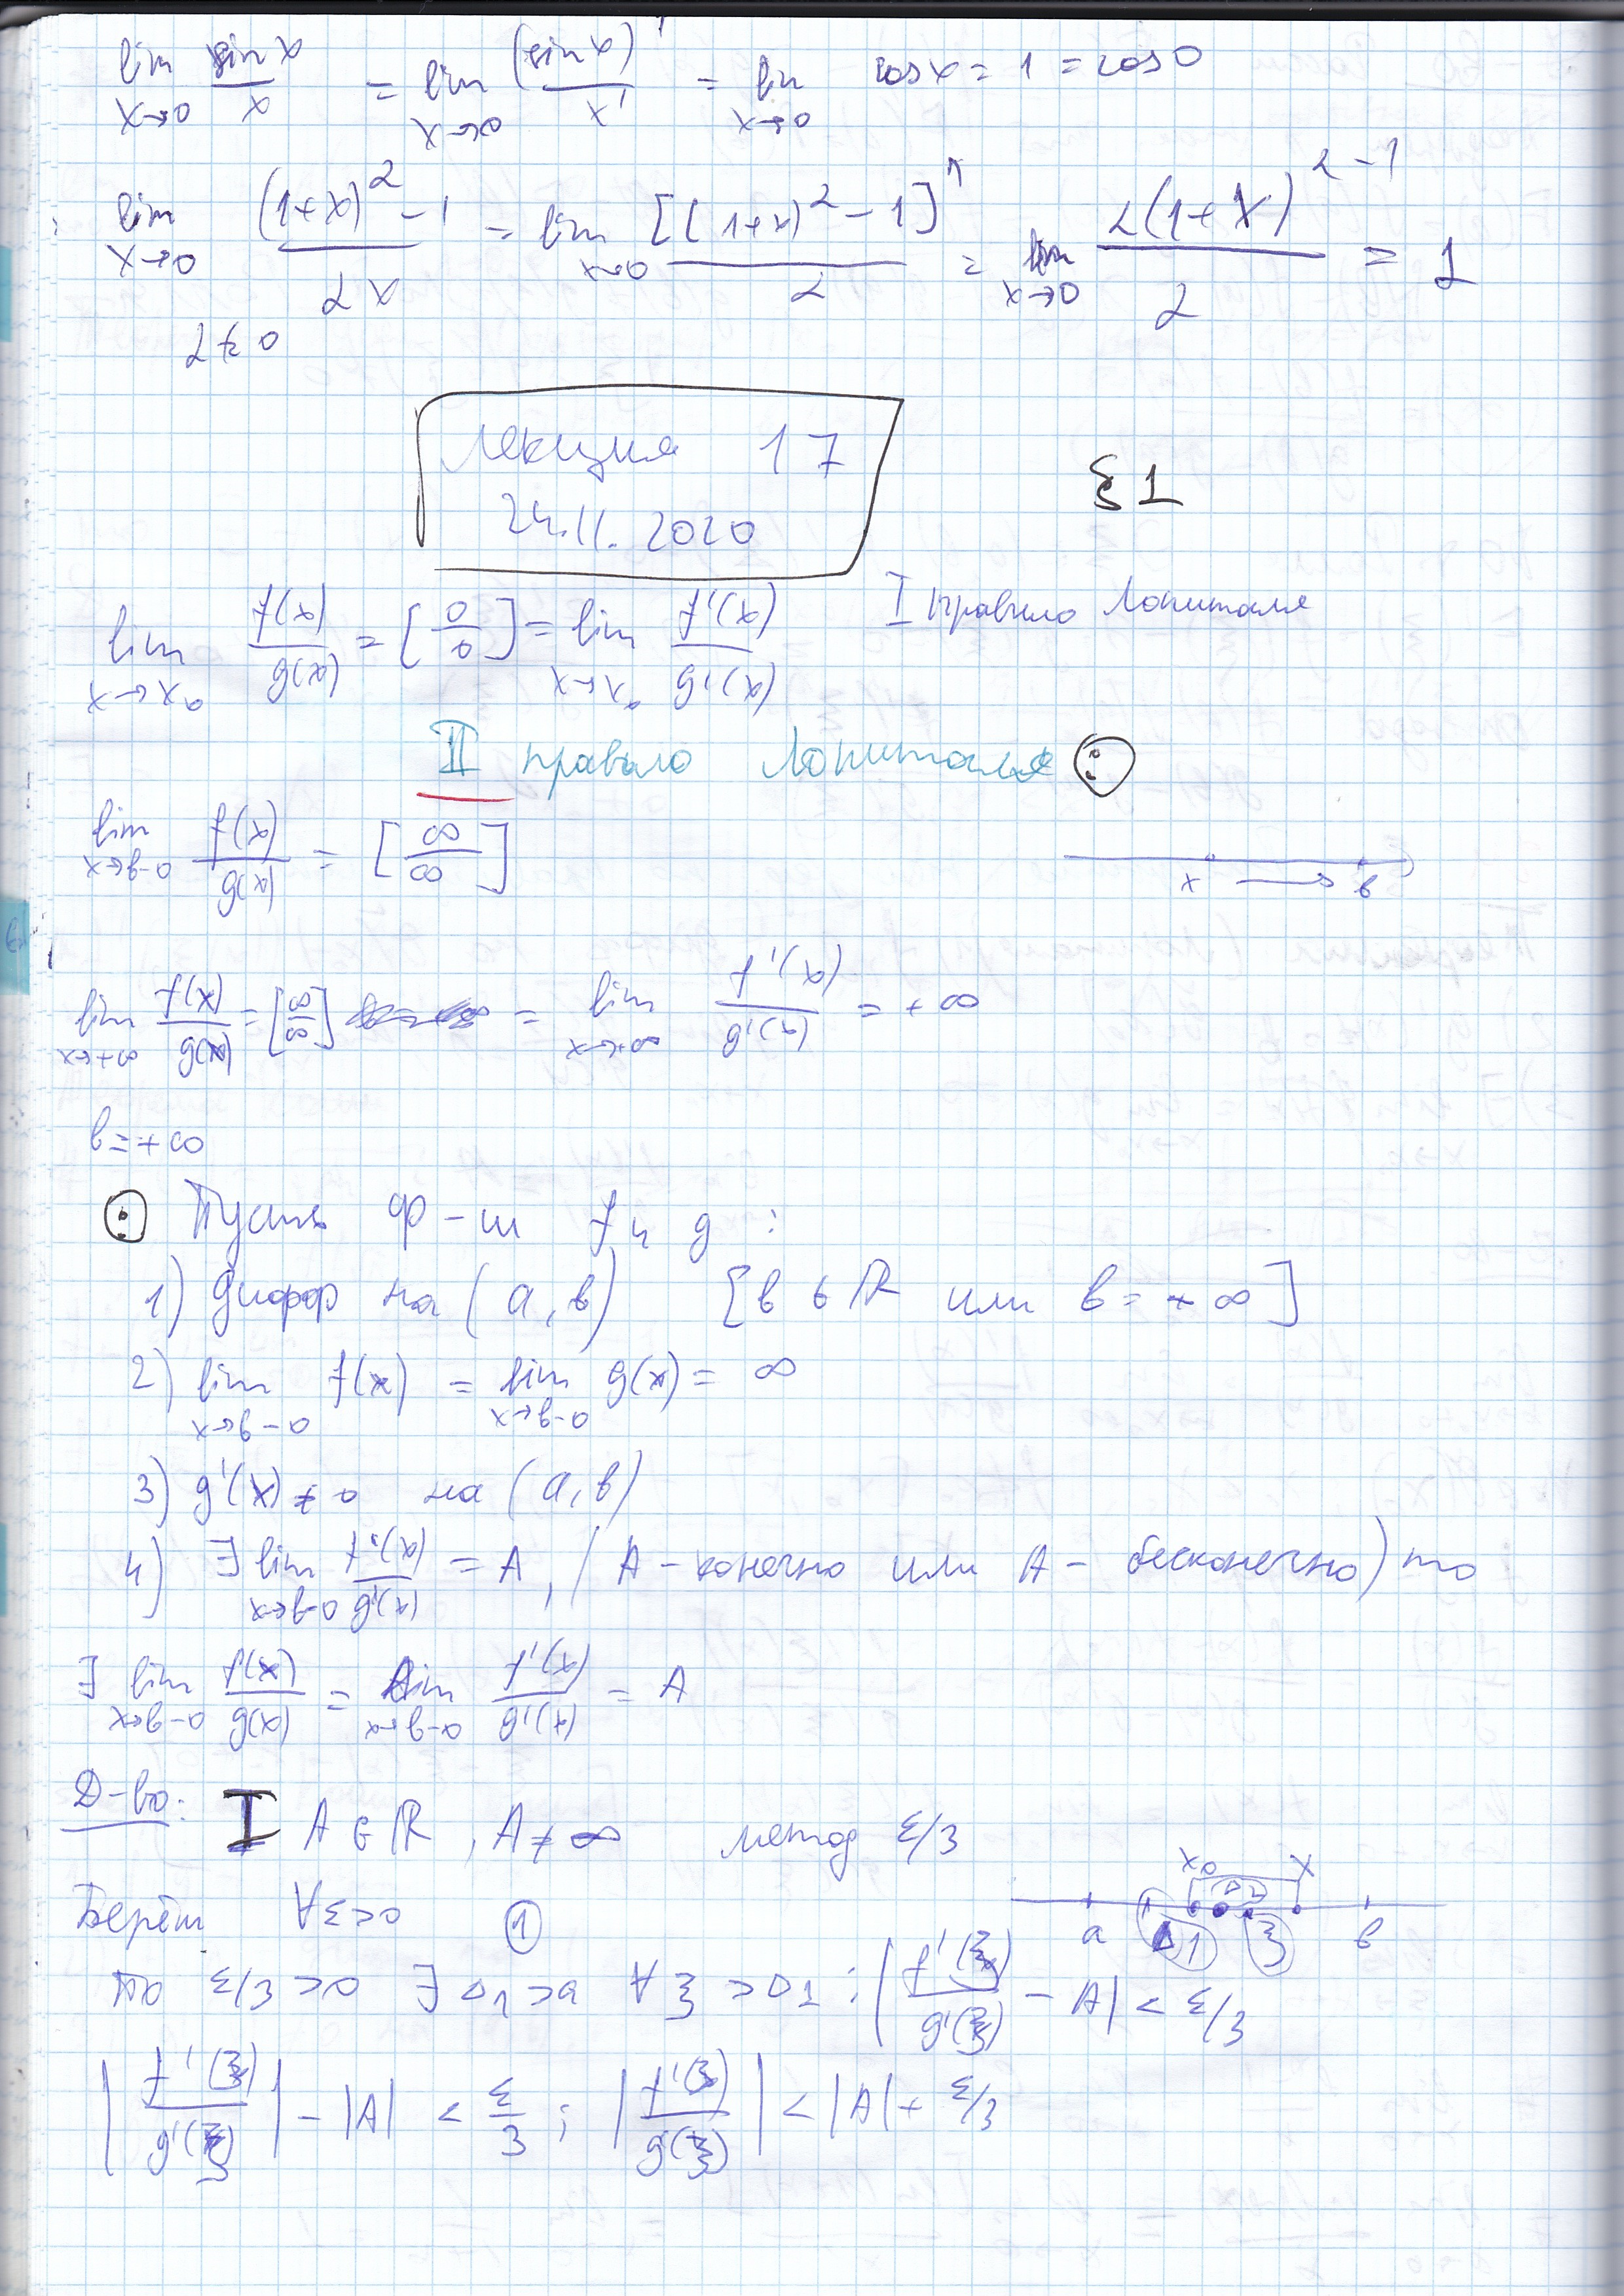 lim x→0 sin x / x = lim x→0 (sin x)' / x' = lim x→0 cos x = 1 = cos 0
lim x→0 ((1+x)^2 - 1) / 2x = lim x→0 [(1+x)^2 - 1]' / 2 = lim x→0 2(1+x)^(2-1) / 2 = 1
2 ≠ 0
Лекция 17
24.11.2020
§1
lim x→x₀ f(x)/g(x) = [0/0] = lim x→x₀ f'(x)/g'(x) I правило Лопиталя
II правило Лопиталя
lim x→b-0 f(x)/g(x) = [∞/∞]
x → b
lim x→+∞ f(x)/g(x) = [∞/∞] = lim x→+∞ f'(x)/g'(x) = +∞
b = +∞
Пусть ф-ии f и g :
1) дифф на (a, b) [b ∈ ℝ или b = +∞]
2) lim x→b-0 f(x) = lim x→b-0 g(x) = ∞
3) g'(x) ≠ 0 на (a, b)
4) ∃ lim x→b-0 f'(x)/g'(x) = A, (A - конечно или A - бесконечно) то
∃ lim x→b-0 f(x)/g(x) = lim x→b-0 f'(x)/g'(x) = A
Д-во: I A ∈ ℝ, A ≠ ∞ метод ε/3
x₀ x
Берём ∀ε>0 ①
a Δ1 Δ2 ξ b
По ε/3 > 0 ∃ Δ₁ > a ∀ ξ > Δ1 : |f'(ξ)/g'(ξ) - A| < ε/3
|f'(ξ)/g'(ξ)| - |A| < ε/3 ; |f'(ξ)/g'(ξ)| < |A| + ε/3